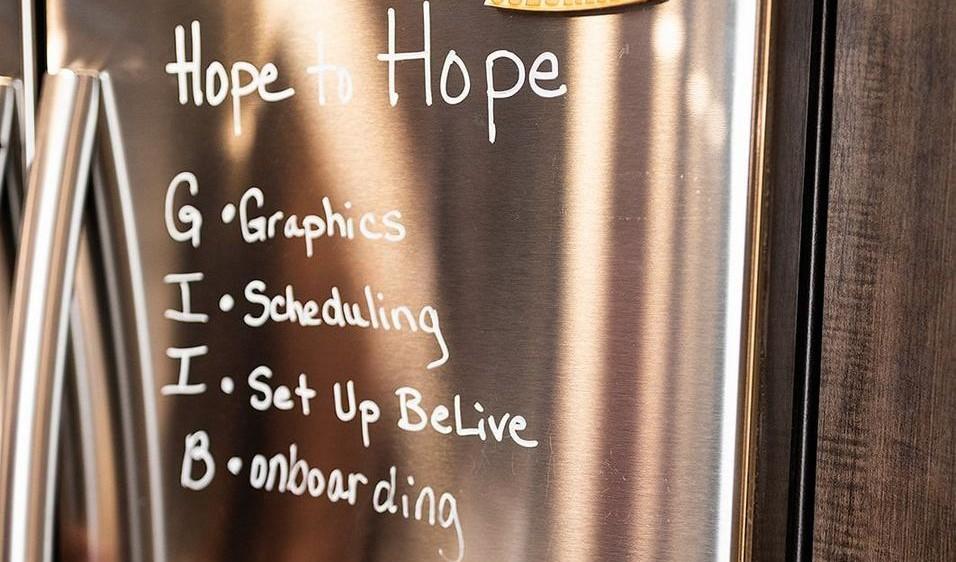 Hope to Hope
G • Graphics
I • Scheduling
I • Set Up BeLive
B • onboarding